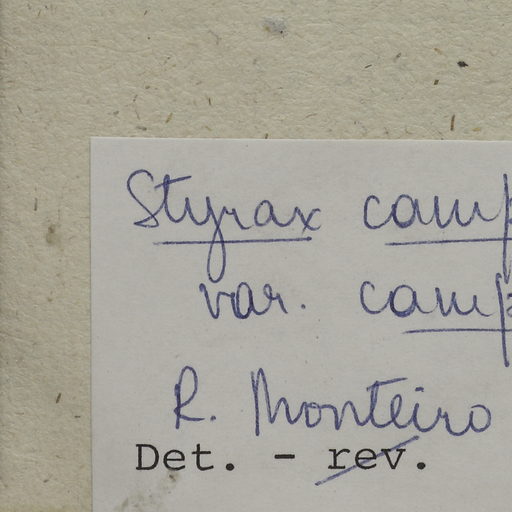 Styrax camp
var. camp
R. Monteiro
Det. - rev.